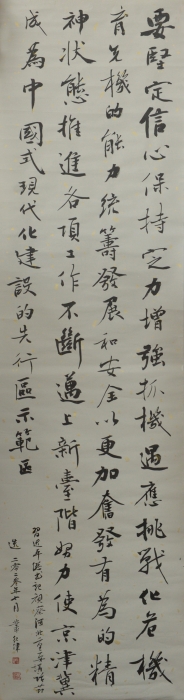 要堅定信心保持定力增強抓機遇應挑戰化危機
育先機的能力統籌發展和安全以更加奮發有為的精
神狀態推進各項工作不斷邁上新臺階努力使京津冀
成為中國式現代化建設的先行區示範區
習近平總書記視察河北重要講話
選二〇二三年十月